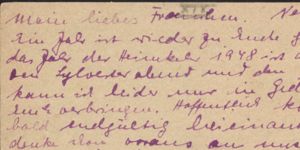 Mein liebes Frauchen. Ne
Ein Jahr ist wieder zu Ende g
das Jahr der Heimkehr 1948 ist a
den Sylvesterabend und den
kann ich leider nur im Ged
Euch verbringen. Hoffentlich k
bald endgültig beieinan
denke schon voraus an un